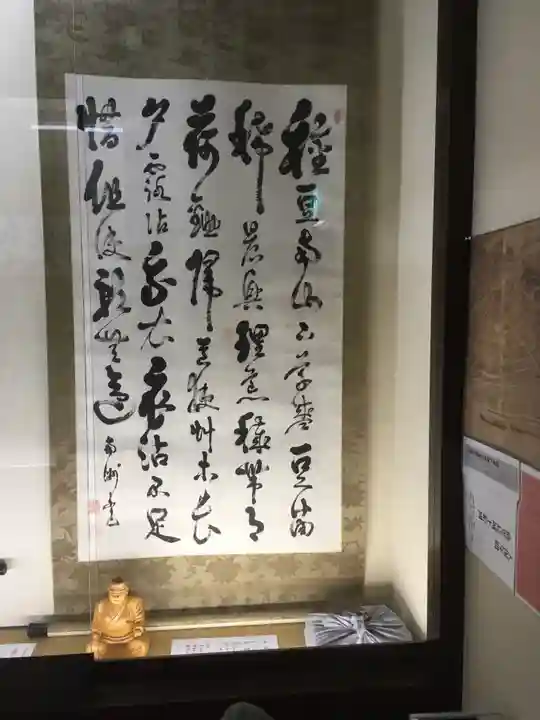 種豆南山下草盛豆苗
稀晨興理荒穢帶月
荷鋤歸道狹艸木長
夕露沾我衣衣沾不足
惜但使願無違
南洲書